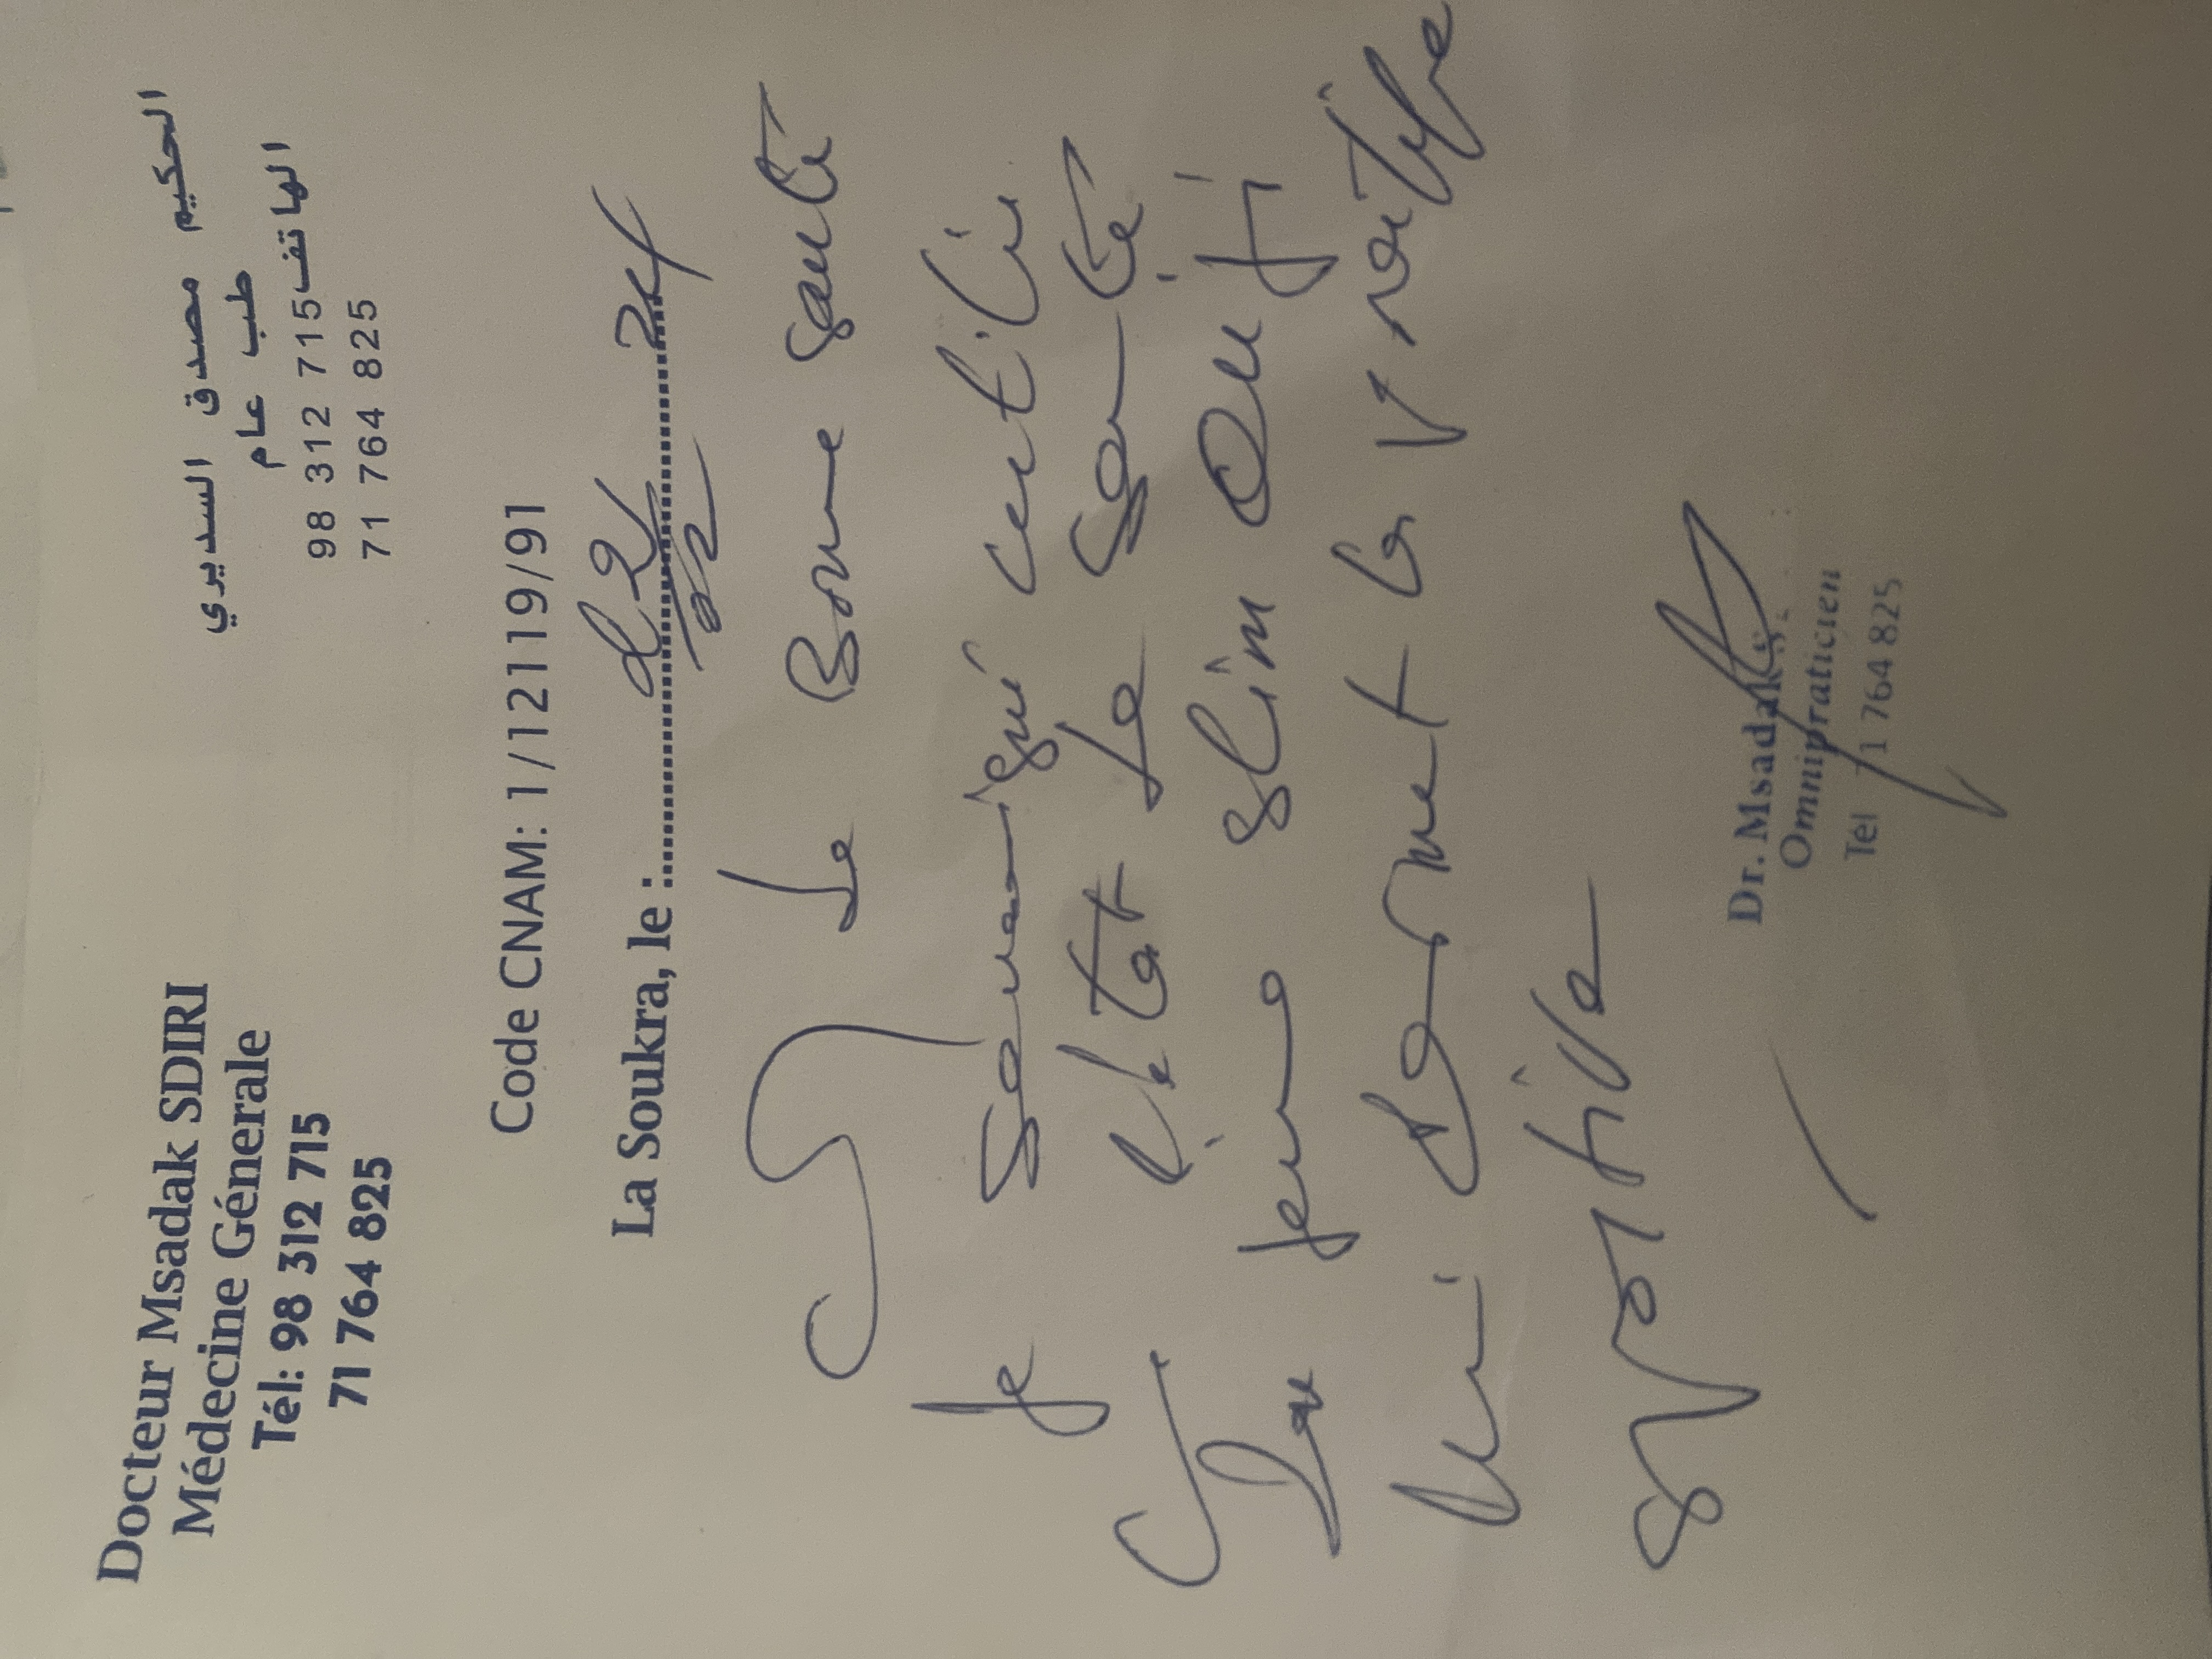 Docteur Msadak SDIRI
Médecine Génerale
Tél: 98 312 715
71 764 825
الحكيم مصدق السديري
طب عام
الهاتف 98 312 715
71 764 825
Code CNAM: 1/12119/91
La Soukra, le :
de Bonne santé
Je Soussigné certifie
l'état de santé
du jeune Slim
lui permet la
sportive
Dr. Msadak
Omnipraticien
Tel 71 764 825